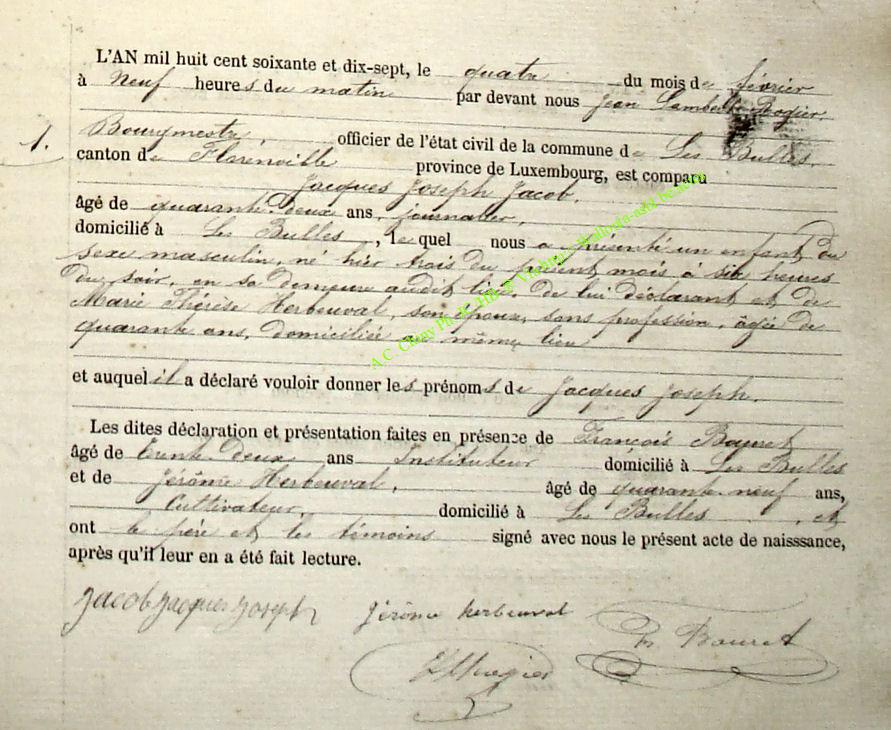 L'AN mil huit cent soixante et dix-sept, le quatre du mois de février
à Neuf heures du matin par devant nous Jean Lambert Rogier
1. Bourgmestre officier de l'état civil de la commune de Les Bulles,
canton de Florenville province de Luxembourg, est comparu
Jacques Joseph Jacob,
âgé de quarante-deux ans, journalier,
domicilié à Les Bulles, lequel nous a présenté un enfant du
sexe masculin, né hier trois du présent mois à six heures
du soir, en sa demeure audit lieu, de lui déclarant et de
Marie Thérèse Herbeuval, son épouse, sans profession, âgée de
quarante ans, domiciliée au même lieu
et auquel il a déclaré vouloir donner les prénoms de Jacques Joseph.
Les dites déclaration et présentation faites en présence de François
âgé de trente-deux ans Instituteur domicilié à Les Bulles
et de Jérôme Herbeuval, âgé de quarante-neuf ans,
Cultivateur, domicilié à Les Bulles, et
ont le père et les témoins signé avec nous le présent acte de naisssance,
après qu'il leur en a été fait lecture.
Jacob Jacques Joseph
jérôme herbeuval
Bouret
A.C. Chiny